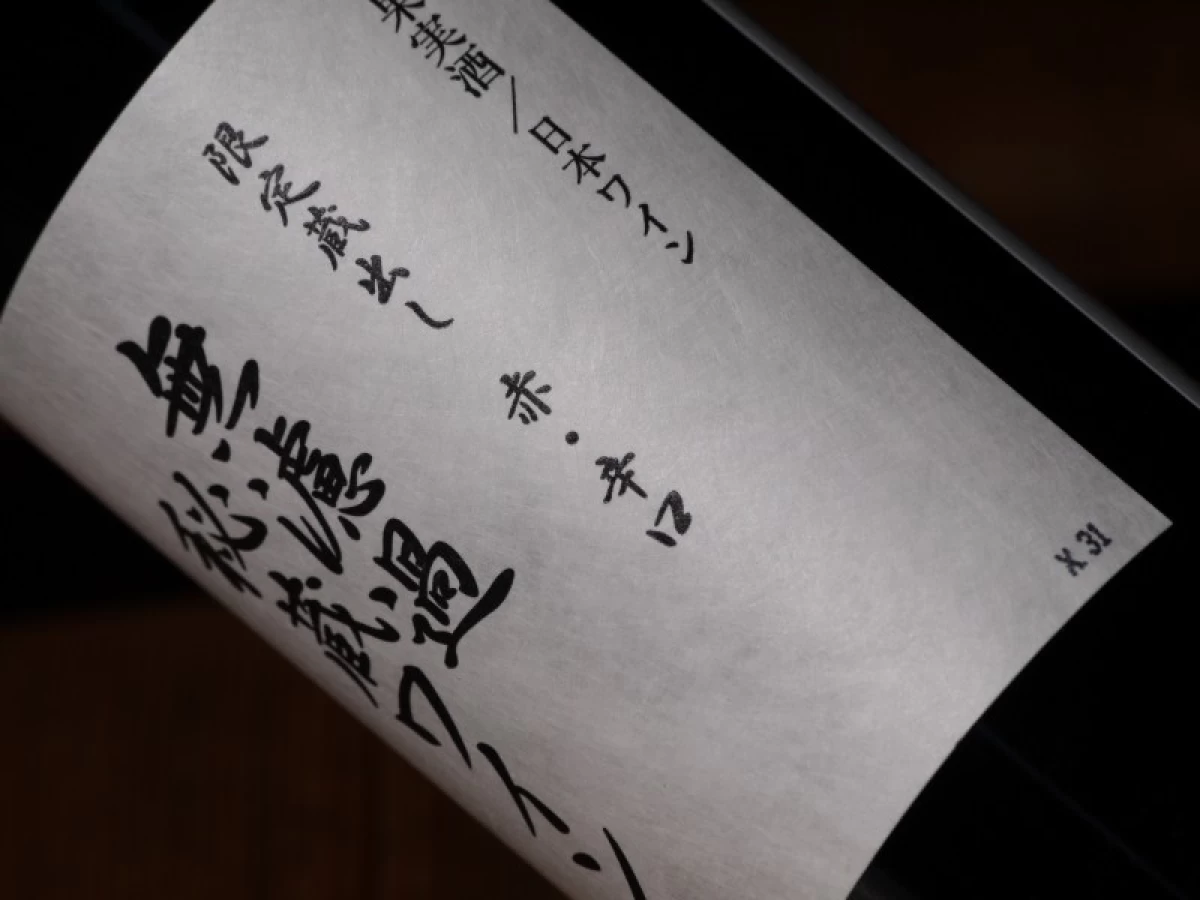 果実酒／日本ワイン
限定蔵出し 赤・辛口
無濾過
秘蔵ワイン
X 31